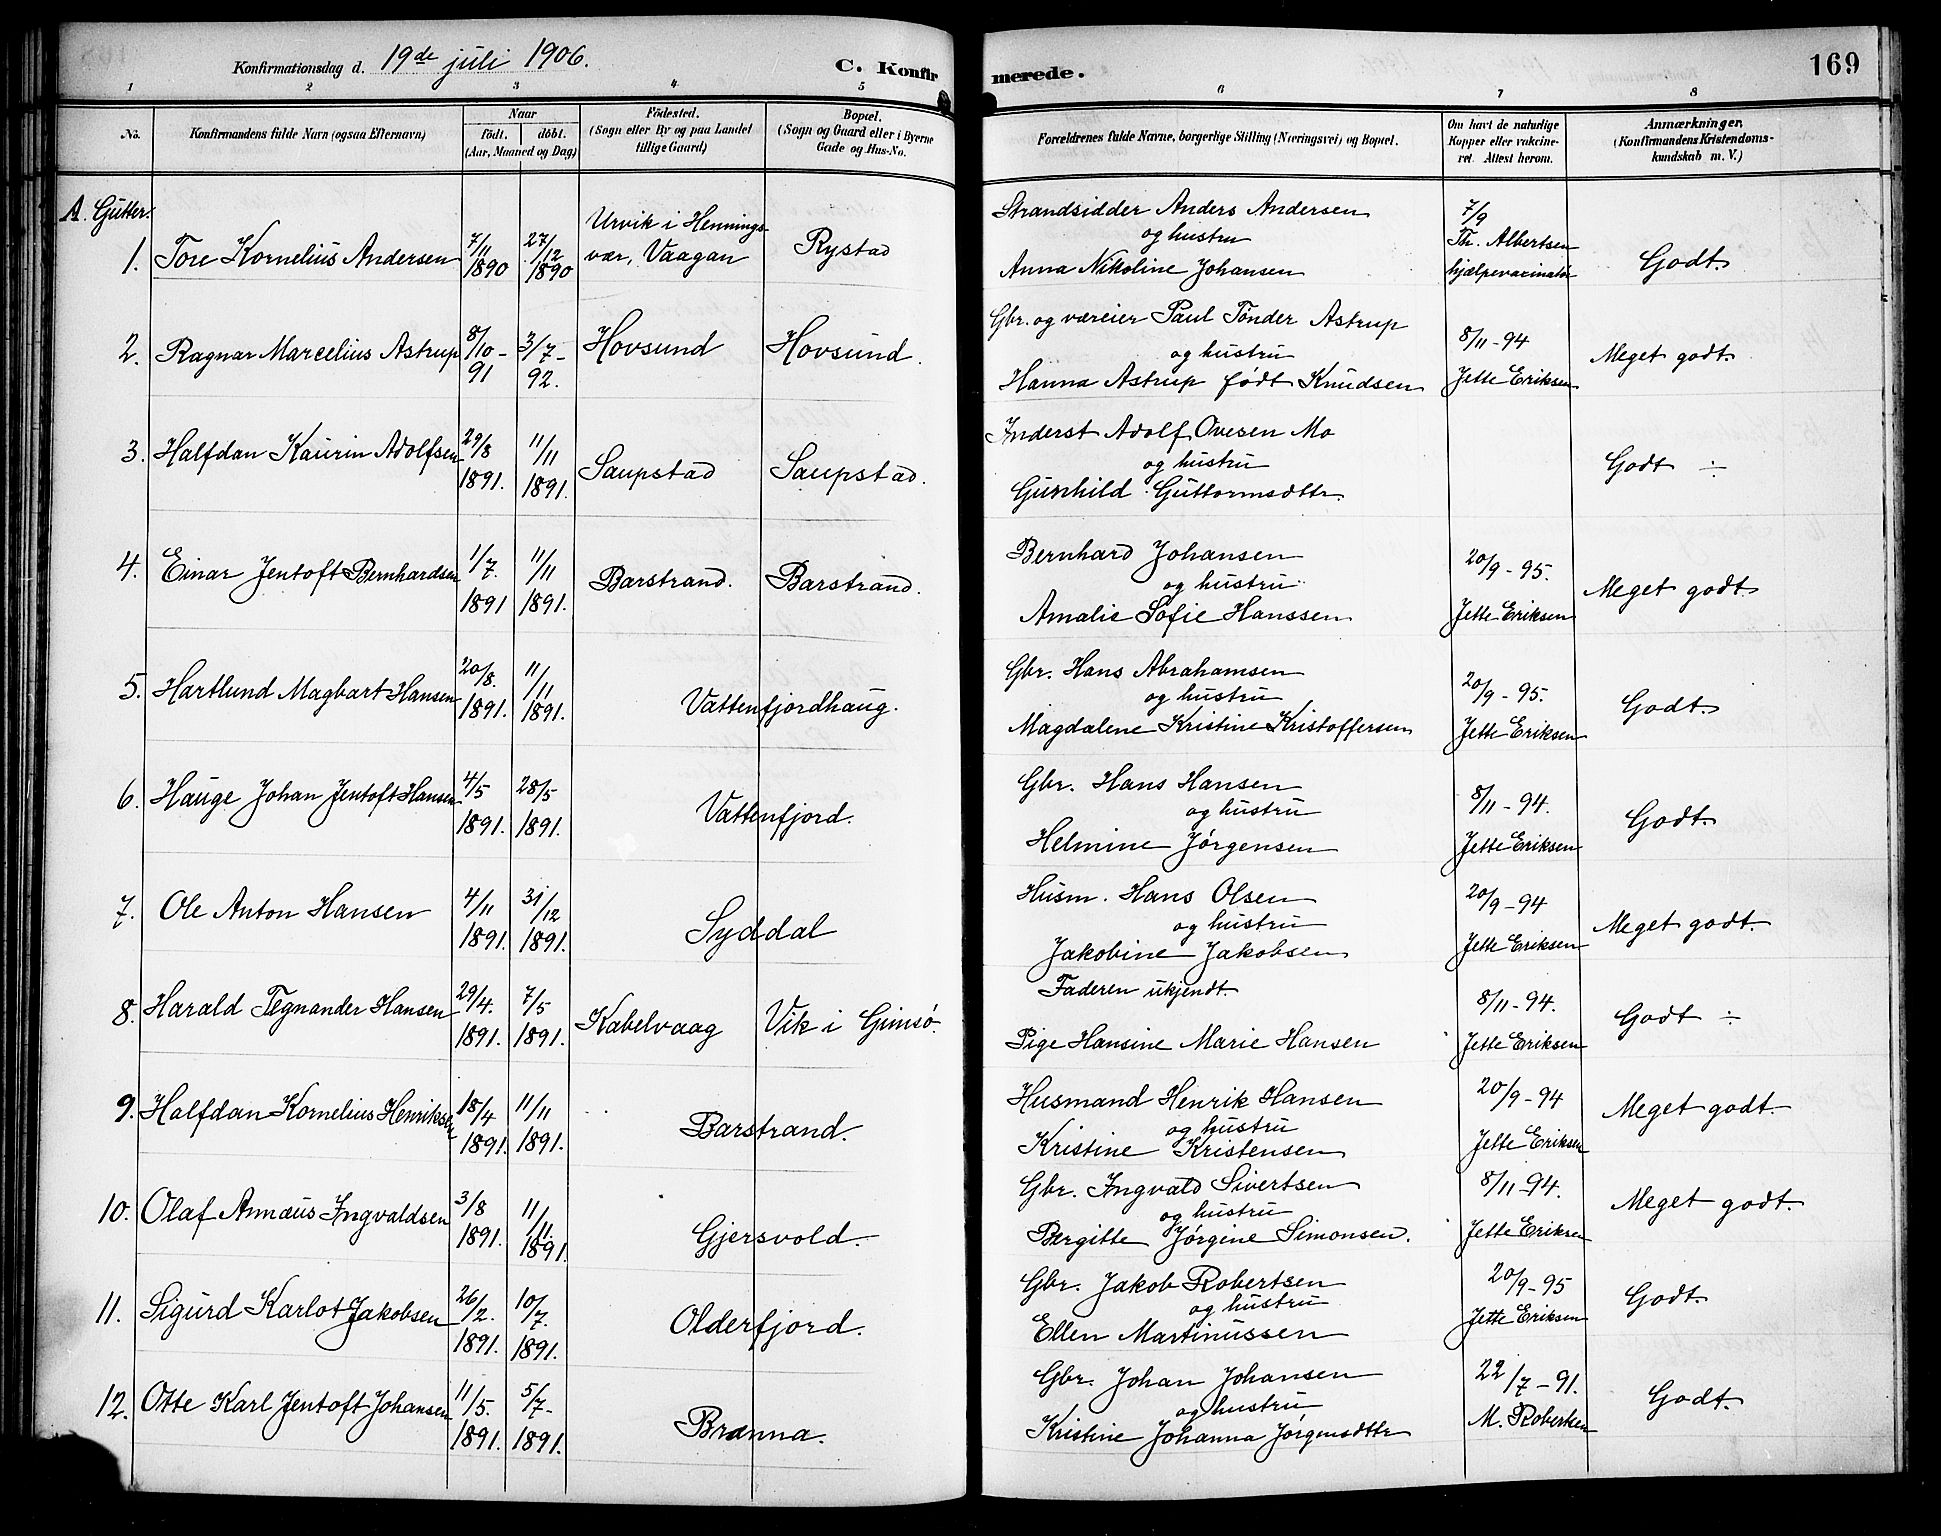 Konfirmationsdag d. 19de juli 1906. C. Konfir merede. 169
1 2 3 4 5 6 7 8
No.
Konfirmandens fulde Navn (ogsaa Efternavn)
Naar
födt. döbt.
(Aar, Maaned og Dag)
Födested.
(Sogn eller By og paa Landet
tillige Gaard)
Bopæl.
(Sogn og Gaard eller i Byerne
Gade og Hus-No.
Forældrenes fulde Navne, borgerlige Stilling (Næringsvei) og Bopæl.
Om havt de naturlige
Kopper eller vakcine-
ret. Attest herom.
Anmærkninger.
(Konfirmandens Kristendoms-
kundskab m. V.)
A. Gutter.
1. Tore Kornelius Andersen
7/11 1890
27/12 1890
Urvik i Hennings-
vær, Vaagan
Rystad
Strandsidder Anders Andersen
og hustru
Anna Nikoline Johansen
7/9
Th. Albertsen
hjælpevaxinatør
Godt.
2. Ragnar Marcelius Astrup
8/10 - 91
3/7 - 92.
Hovsund
Hovsund.
Gbr. og væreier Paul Tønder Astrup
og hustru
Hanna Astrup født Knudsen
8/11 - 94
Jette Eriksen
Meget godt.
3. Halfdan Kaurin Adolfsen
29/8 1891.
11/11 1891.
Saupstad
Saupstad.
Inderst Adolf Ovesen Mo
og hustru
Gunhild Guttormsdttr.
Godt ÷
4. Einar Jentoft Bernhardsen
1/7. 1891
11/11 1891.
Barstrand.
Barstrand.
Bernhard Johansen
og hustru
Amalie Sofie Hanssen
20/9 - 95.
Jette Eriksen
Meget godt.
5. Hartlund Magbart Hansen
20/8. 1891.
11/11 1891.
Vattenfjordhaug.
Gbr. Hans Abrahamsen
og hustru
Magdalene Kristine Kristoffersen
20/9 - 95.
Jette Eriksen
Godt.
6. Hauge Johan Jentoft Hansen
4/5 1891.
28/5 1891.
Vattenfjord.
Gbr. Hans Hansen
og hustru
Helmine Jørgensen
8/11 - 94.
Jette Eriksen
Godt.
7. Ole Anton Hansen
4/11 1891.
31/12 1891.
Syddal
Husm. Hans Olsen
og hustru
Jakobine Jakobsen
20/9 - 94
Jette Eriksen
Meget godt.
8. Harald Tegnander Hansen
29/4. 1891.
7/5 1891.
Kabelvaag
Vik i Gimsø.
Faderen ukjendt.
Pige Hansine Marie Hansen
8/11 - 94.
Jette Eriksen
Godt ÷
9. Halfdan Kornelius Henriksen
18/4 1891.
11/11 1891.
Barstrand.
Husmand Henrik Hansen
og hustru
Kristine Kristensen
20/9 - 94
Jette Eriksen
Meget godt.
10. Olaf Annæus Ingvaldsen
3/8 1891.
11/11 1891.
Gjersvold.
Gbr. Ingvald Sivertsen
og hustru
Bergitte Jørgine Simonsen.
8/11 - 94.
Jette Eriksen
Meget godt.
11. Sigurd Karlot Jakobsen
26/2. 1891.
10/7. 1891.
Olderfjord.
Gbr. Jakob Robertsen
og hustru
Ellen Martinussen
20/9 - 95
Jette Eriksen
Godt.
12. Otte Karl Jentoft Johansen
11/5. 1891.
5/7- 1891.
Brænna.
Gbr. Johan Johansen
og hustru
Kristine Johanna Jørgensdttr
22/7 - 91.
M. Robertsen
Godt.